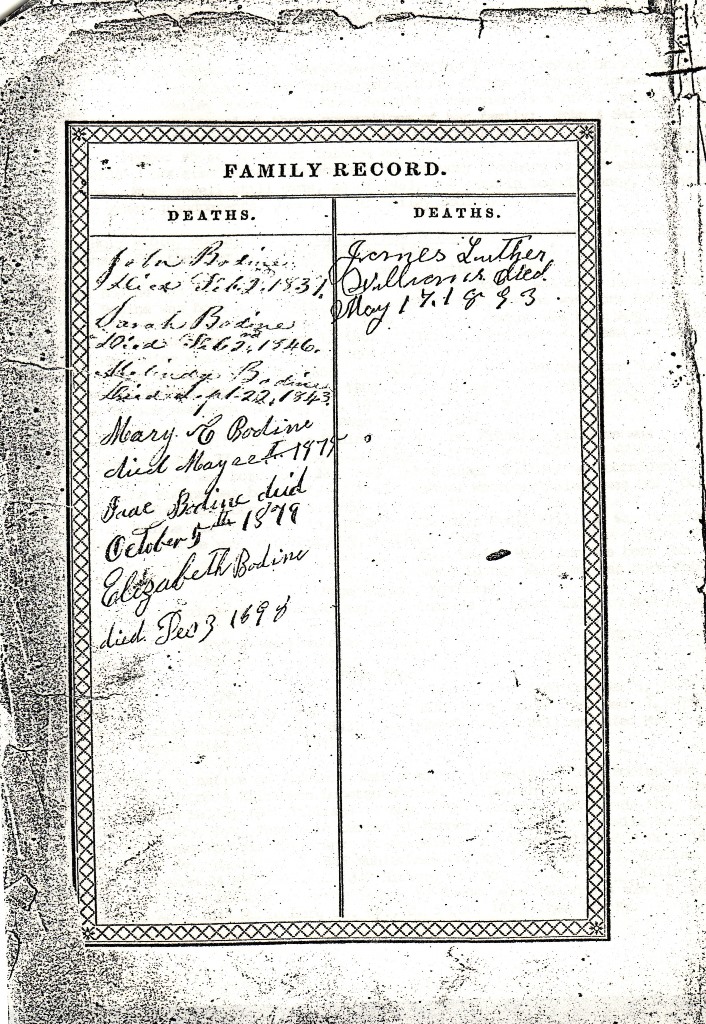 FAMILY RECORD.
DEATHS.
John Bodine
Died Feb 2, 1831,
Sarah Bodine
Died Feb 2nd, 1846.
Malindy Bodine
Died Sept. 22, 1843
Mary E Bodine
died May
Isac Bodine died
October 5th 1879
Elizabeth Bodine
died Dec 3 1898
DEATHS.
James Luther
Williams died
May 17. 1893